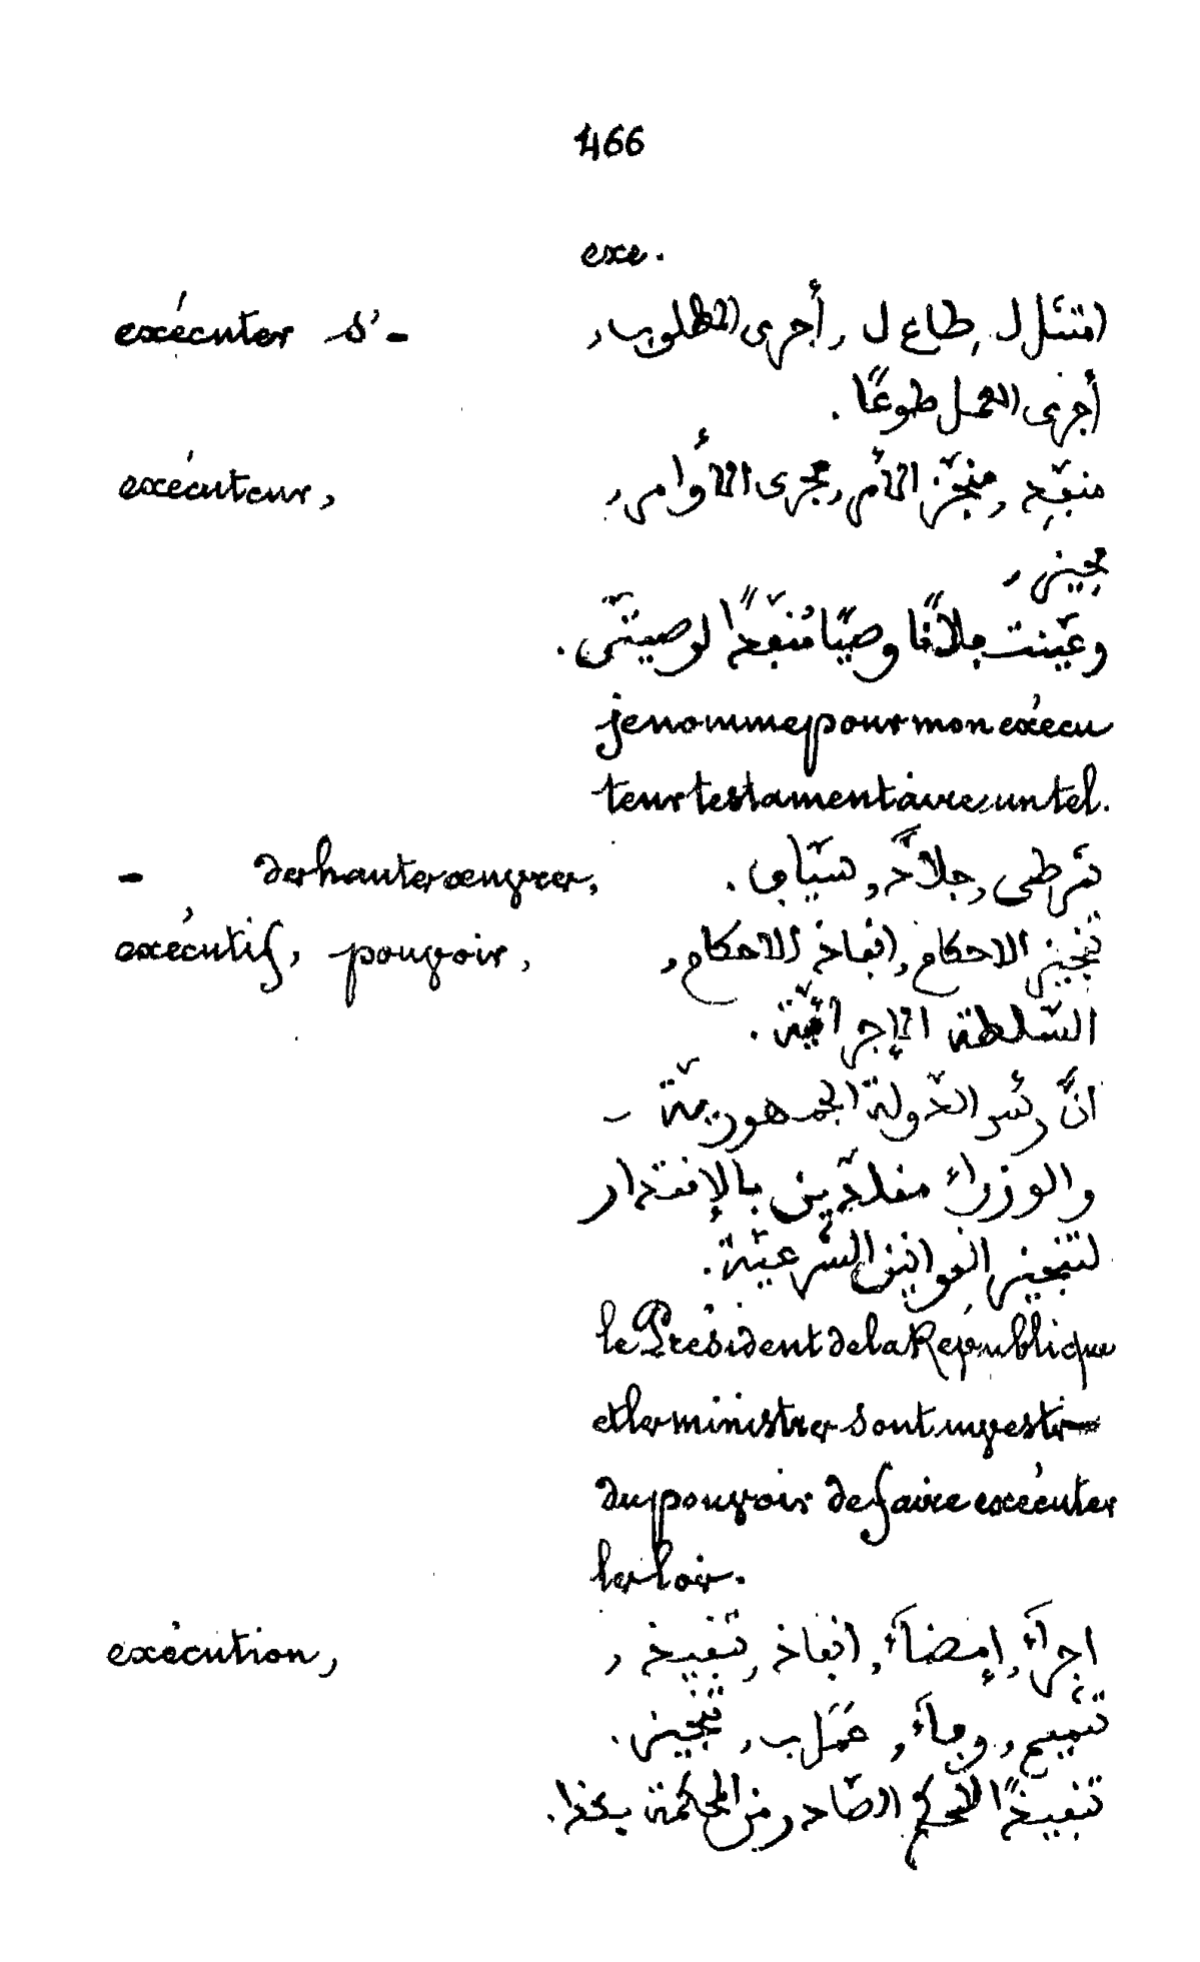 466
exe.
exécuter s'- امتثل ل, طاع ل, أجرى المطلوب,
أجرى العمل طوعًا.
exécuteur, منفّذ, منجّز الأمر, مجرى الأوامر,
مجيز,
وعيّنت فلانًا وصيًّا منفّذًا لوصيتى.
je nomme pour mon exécu
teur testamentaire un tel.
- des hautes œuvres, شرطى, جلّاد, سيّاف.
exécutif, pouvoir, تنجيز الاحكام, انفاذ الاحكام,
السّلطة الإجرائيّة.
انّ رئس الدّولة الجمهوريّة -
والوزراء مقلّدين بالإقتدار
لتنجيز القوانين الشّرعيّة.
le Président de la République
et les ministres sont investis
du pouvoir de faire exécuter
les lois.
exécution, اجرآء, إمضآء, انفاذ, تنفيذ,
تتميم, وفآء, عَمَل ب, تنجيز.
تنفيذًا للحكم الصّادر من المحكمة بكذا.